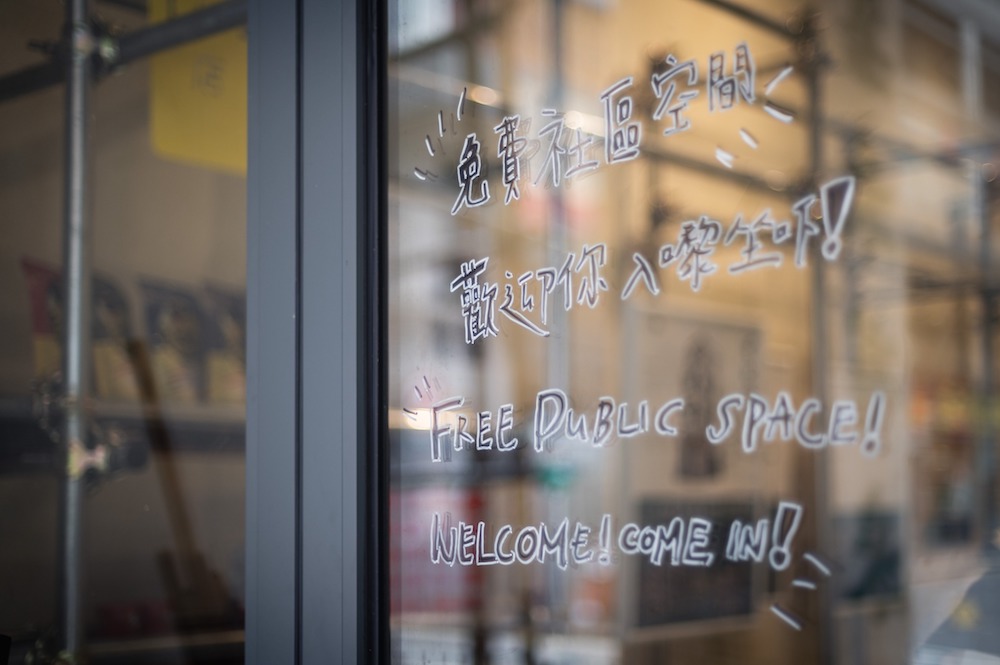 免費社區空間
歡迎你入嚟坐吓!
FREE PUBLIC SPACE!
WELCOME! COME IN!